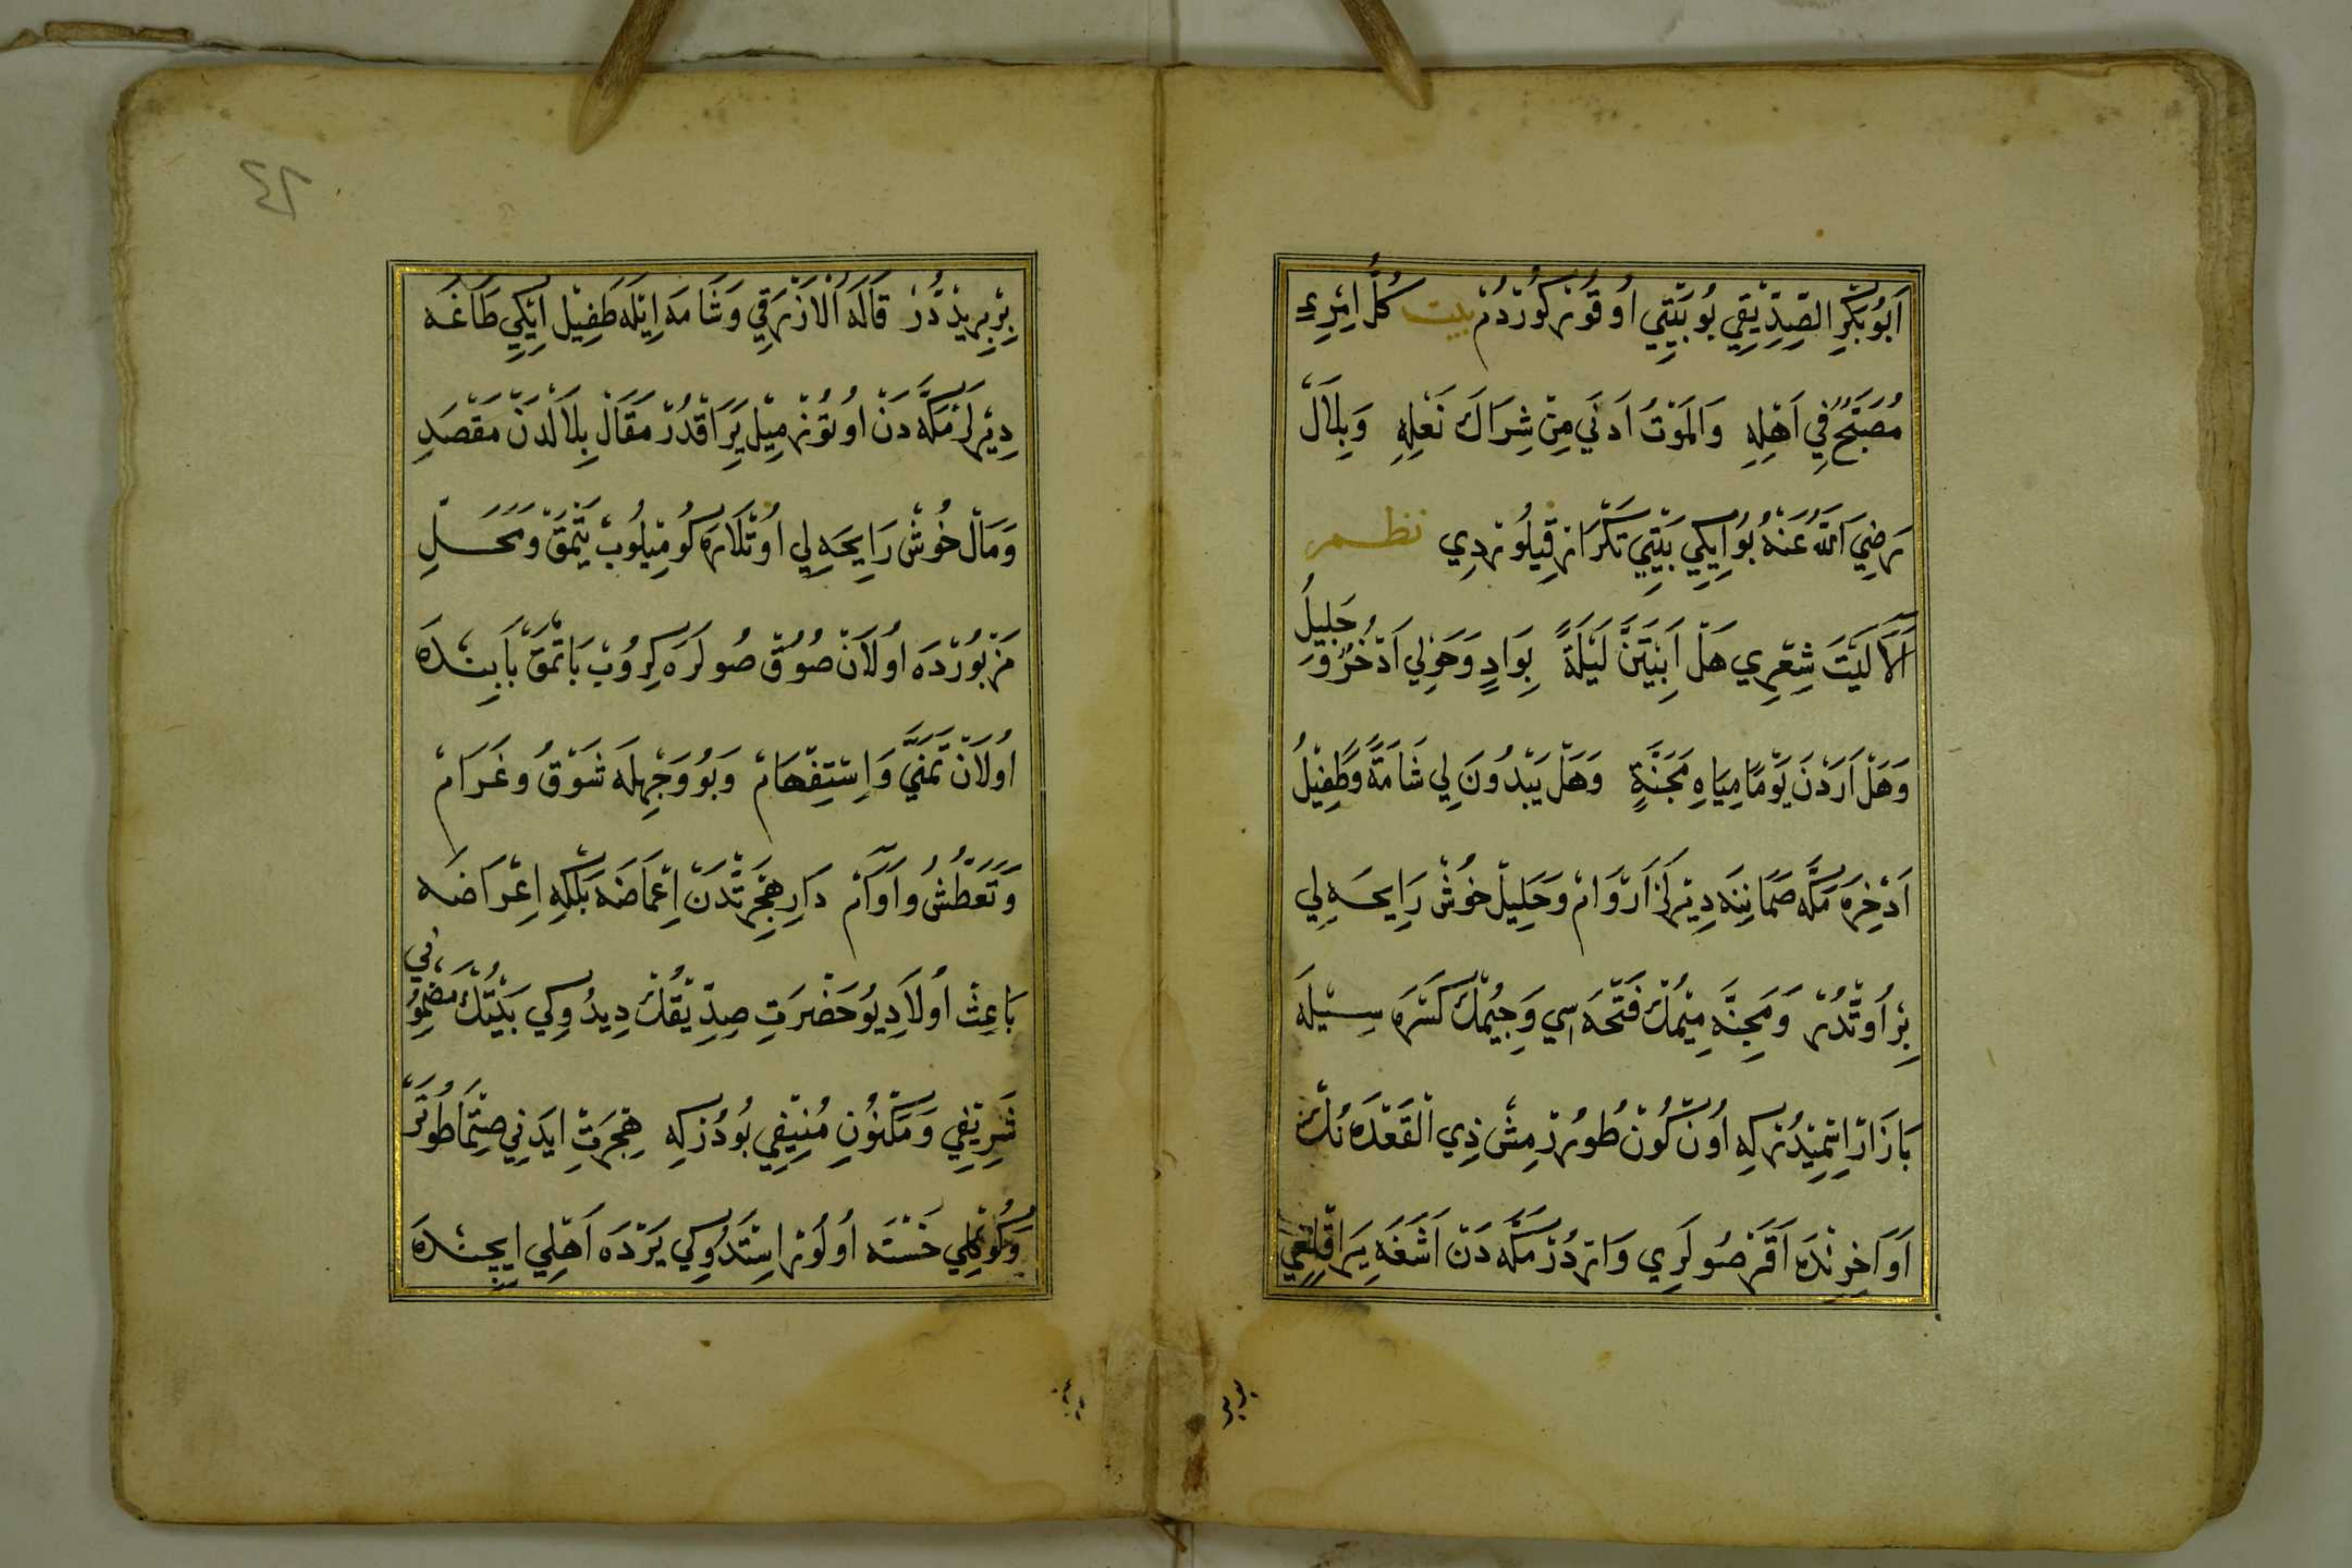 اَبُوبَكْرِ الصِّدِّيْقِي بُو بَيْتِي اُوقُوْرْ كُورْدُمْ بيت كُلُّ امْرِءٍ
مُصَبَّحٌ فِي اَهْلِهِ وَالْمَوْتُ اَدْنَي مِنْ شِرَاكَ نَعْلِهِ وَبِلَالْ
رَضِيَ اللّٰهُ عَنْهُ بُو اِيكِي بَيْتِي تَكْرَارْ قِيلُورْدِي نظم
اَلَا لَيْتَ شِعْرِي هَلْ اَبِيْتَنَّ لَيْلَةً بِوَادٍ وَحَوْلِي اَدْخُرٌ وَ جَلِيلُ
وَهَلْ اَرَدْنَ يَوْمًا مِيَاهِ مَجَنَّةٍ وَهَلْ يَبْدُونَ لِي شَامَةً وَطَفِيْلُ
اَدْخِرَه مَكَّه صَمَانِنَه دِيْرلَرْ اَرْوَامْ وَجَلِيْلْ خُوشْ رَايِحَه لِي
بِرْ اُوتْدُرْ وَمَجِنَّه مِيْمُكْ فَتْحَه سِي وَجِيْمُكْ كَسْرَه سِيْلَه
بَازَارْ اِتْمِيْدُرْ كِه اُونْ كُونْ طُورْرْمِشْ ذِي الْقَعْدَه نُكْ
اَوَاخِرِنْدَه اَقَرْ صُولَرِي وَارْدُرْ مَكَّه دَنْ اَشَغَه يَرَاقْلِغِي
بِرْ بَرِيدْدُرْ قَالَهُ اَلْاَزْرَقِي وَشَامَه اِيْلَه طَفِيْل اِيْكِي طَاغَه
دِيْرلَرْ مَكَّه دَنْ اُوتُوزْ مِيْل يَرَاقْدُرْ مَقَالْ بِلَالْدَنْ مَقْصَدِ
وَمَالْ خُوشْ رَايِحَه لِي اُوتْلَارَه كُومِيْلُوبْ يَتْمَقْ وَمَحَلِّ
مَزْبُورْدَه اُولَانْ صُوُقْ صُولَرَه كِرُوبْ بَاتْمَقْ بَابِنْدَه
اُولَانْ تَمَنِّي وَاِسْتِفْهَامْ وَبُو وَجْهِلَه شَوْقُ وغَرَامْ
وَتَعَطُّشُ وَاُوَامْ دَارِ هِجْرَتْدَنْ اِغْمَاضَه بَلْكِه اِعْرَاضَه
بَاعِثْ اُولَادِيُو حَضْرَتِ صِدِّيْقُكْ دِيدُوكِي بَيْتُكْ مَضْمُو نِي
شَرِيْفِي وَمَكْنُونِ مُنِيْفِي بُودُرْ كِه هِجْرَتْ ايدَنِي صِتْمَا طُوتَرْ
وَكُوكْلِي خَسْتَه اُولُورْ اِشْتَدُوكِي يَرْدَه اَهْلِي اِيچِنْدَه